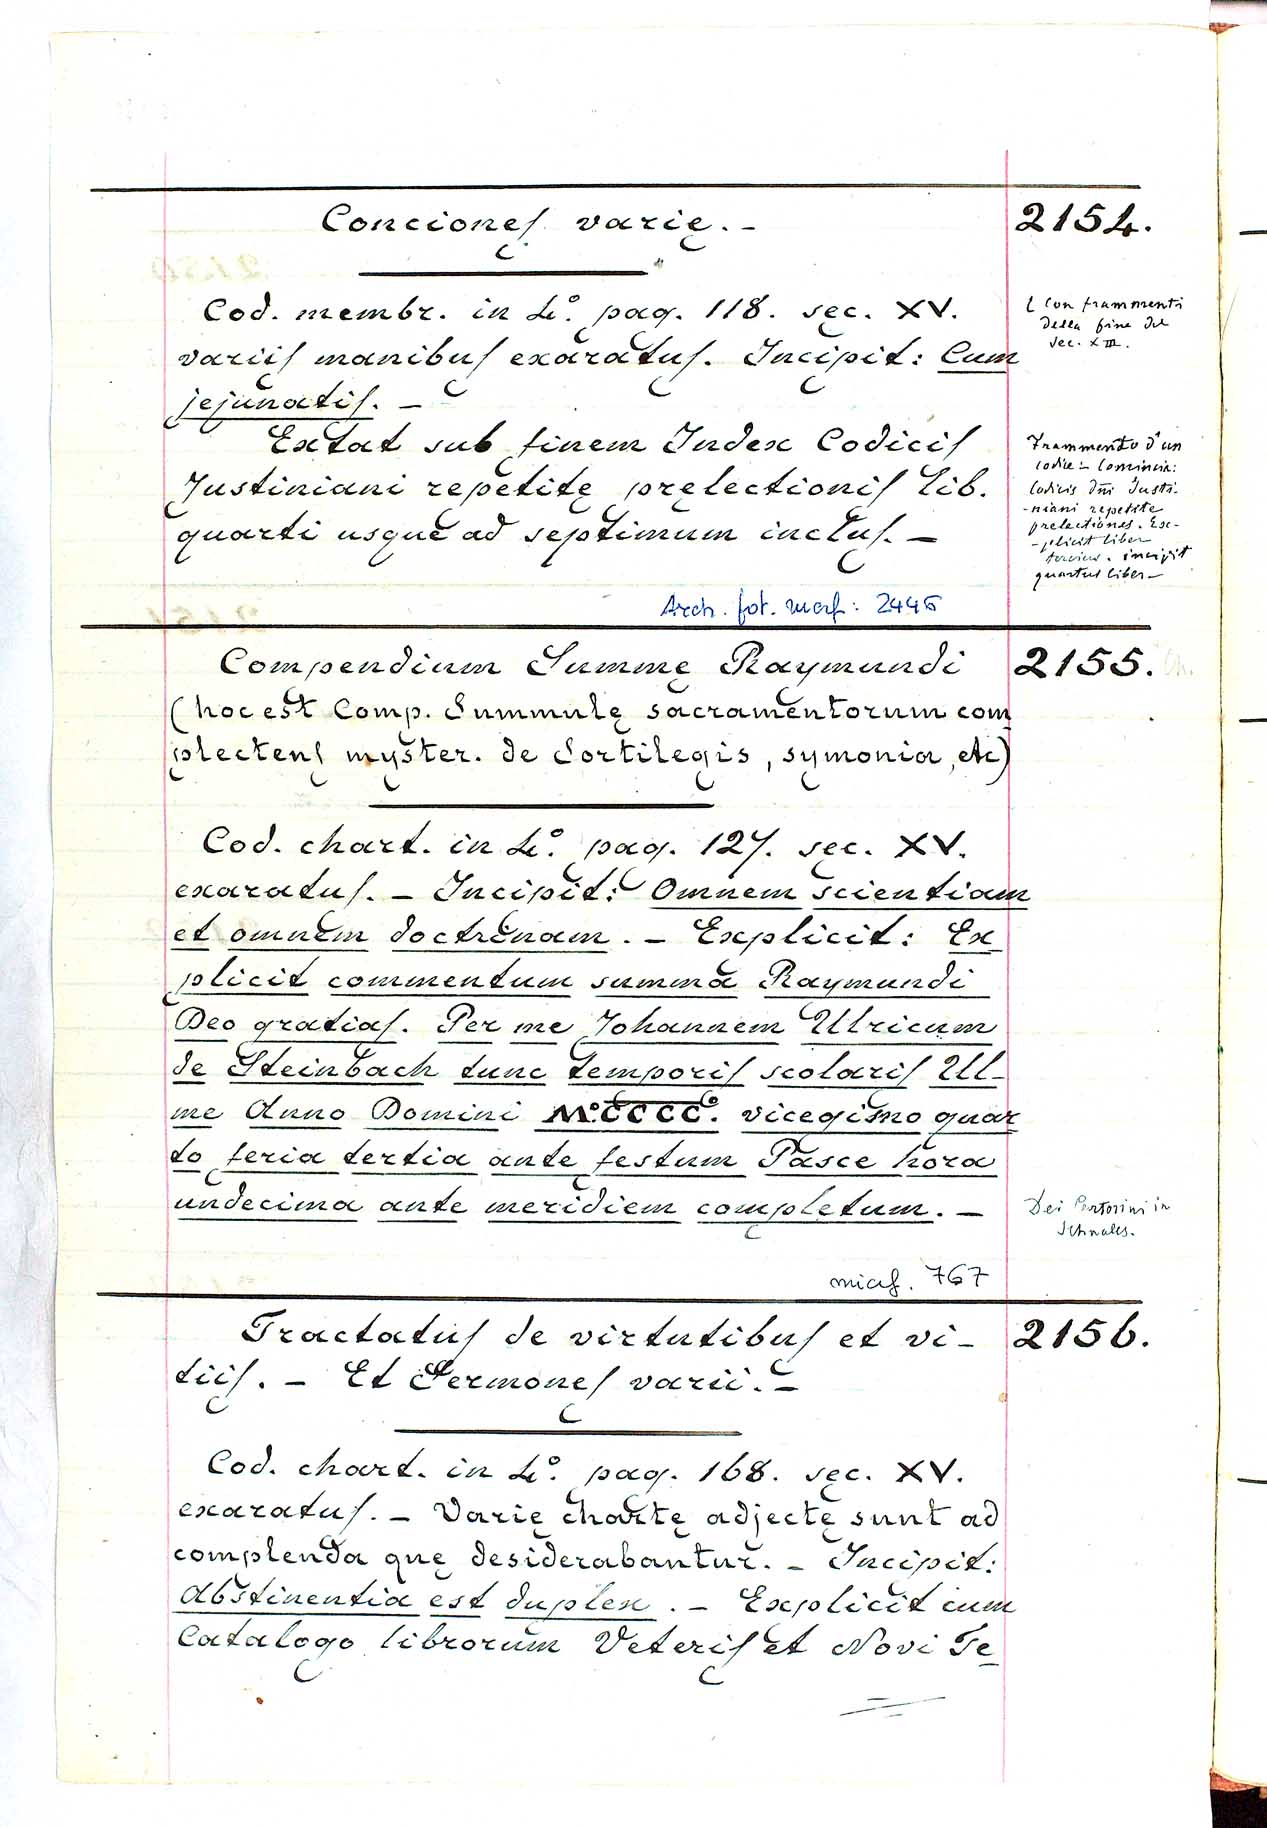 Conciones varię. –
2154.
Cod. membr. in 4.° pag. 118. sęc. XV.
variis manibus exaratus. Incipit: Cum
jejunatis. –
( Con frammenti
della fine del
sec. XIII.
Extat sub finem Index Codicis
Justiniani repetitę pręlectionis Lib.
quarti usque ad septimum inclus. –
Frammento d'un
codice: Comincia:
Codicis dni Justi-
-niani repetite
prelectiones. Ex-
-plicit liber
tercius. incipit
quartus liber –
Arch. fot. mcrf: 2446
Compendium Summę Raymundi
2155.
(hoc est Comp. Summulę sacramentorum com
plectens myster. de Sortilegis, symonia, etc)
Cod. chart. in 4.° pag. 127. sęc. XV.
exaratus. – Incipit: Omnem scientiam
et omnem doctrinam. – Explicit: Ex
plicit commentum summa Raymundi
Deo gratias. Per me Johannem Ulricum
de Steinbach tunc temporis scolaris Ul-
me Anno Domini M.°CCCC.° vicegismo quar
to feria tertia ante festum Pasce hora
undecima ante meridiem completum. –
Dei Certosini in
Schnals.
micrf. 767
Tractatus de virtutibus et vi-
2156.
tiis. – Et Sermones varii. –
Cod. chart. in 4.° pag. 168. sęc. XV.
exaratus. – Varię chartę adjectę sunt ad
complenda quę desiderabantur. – Incipit:
Abstinentia est duplex. – Explicit cum
Catalogo librorum Veteris et Novi Te